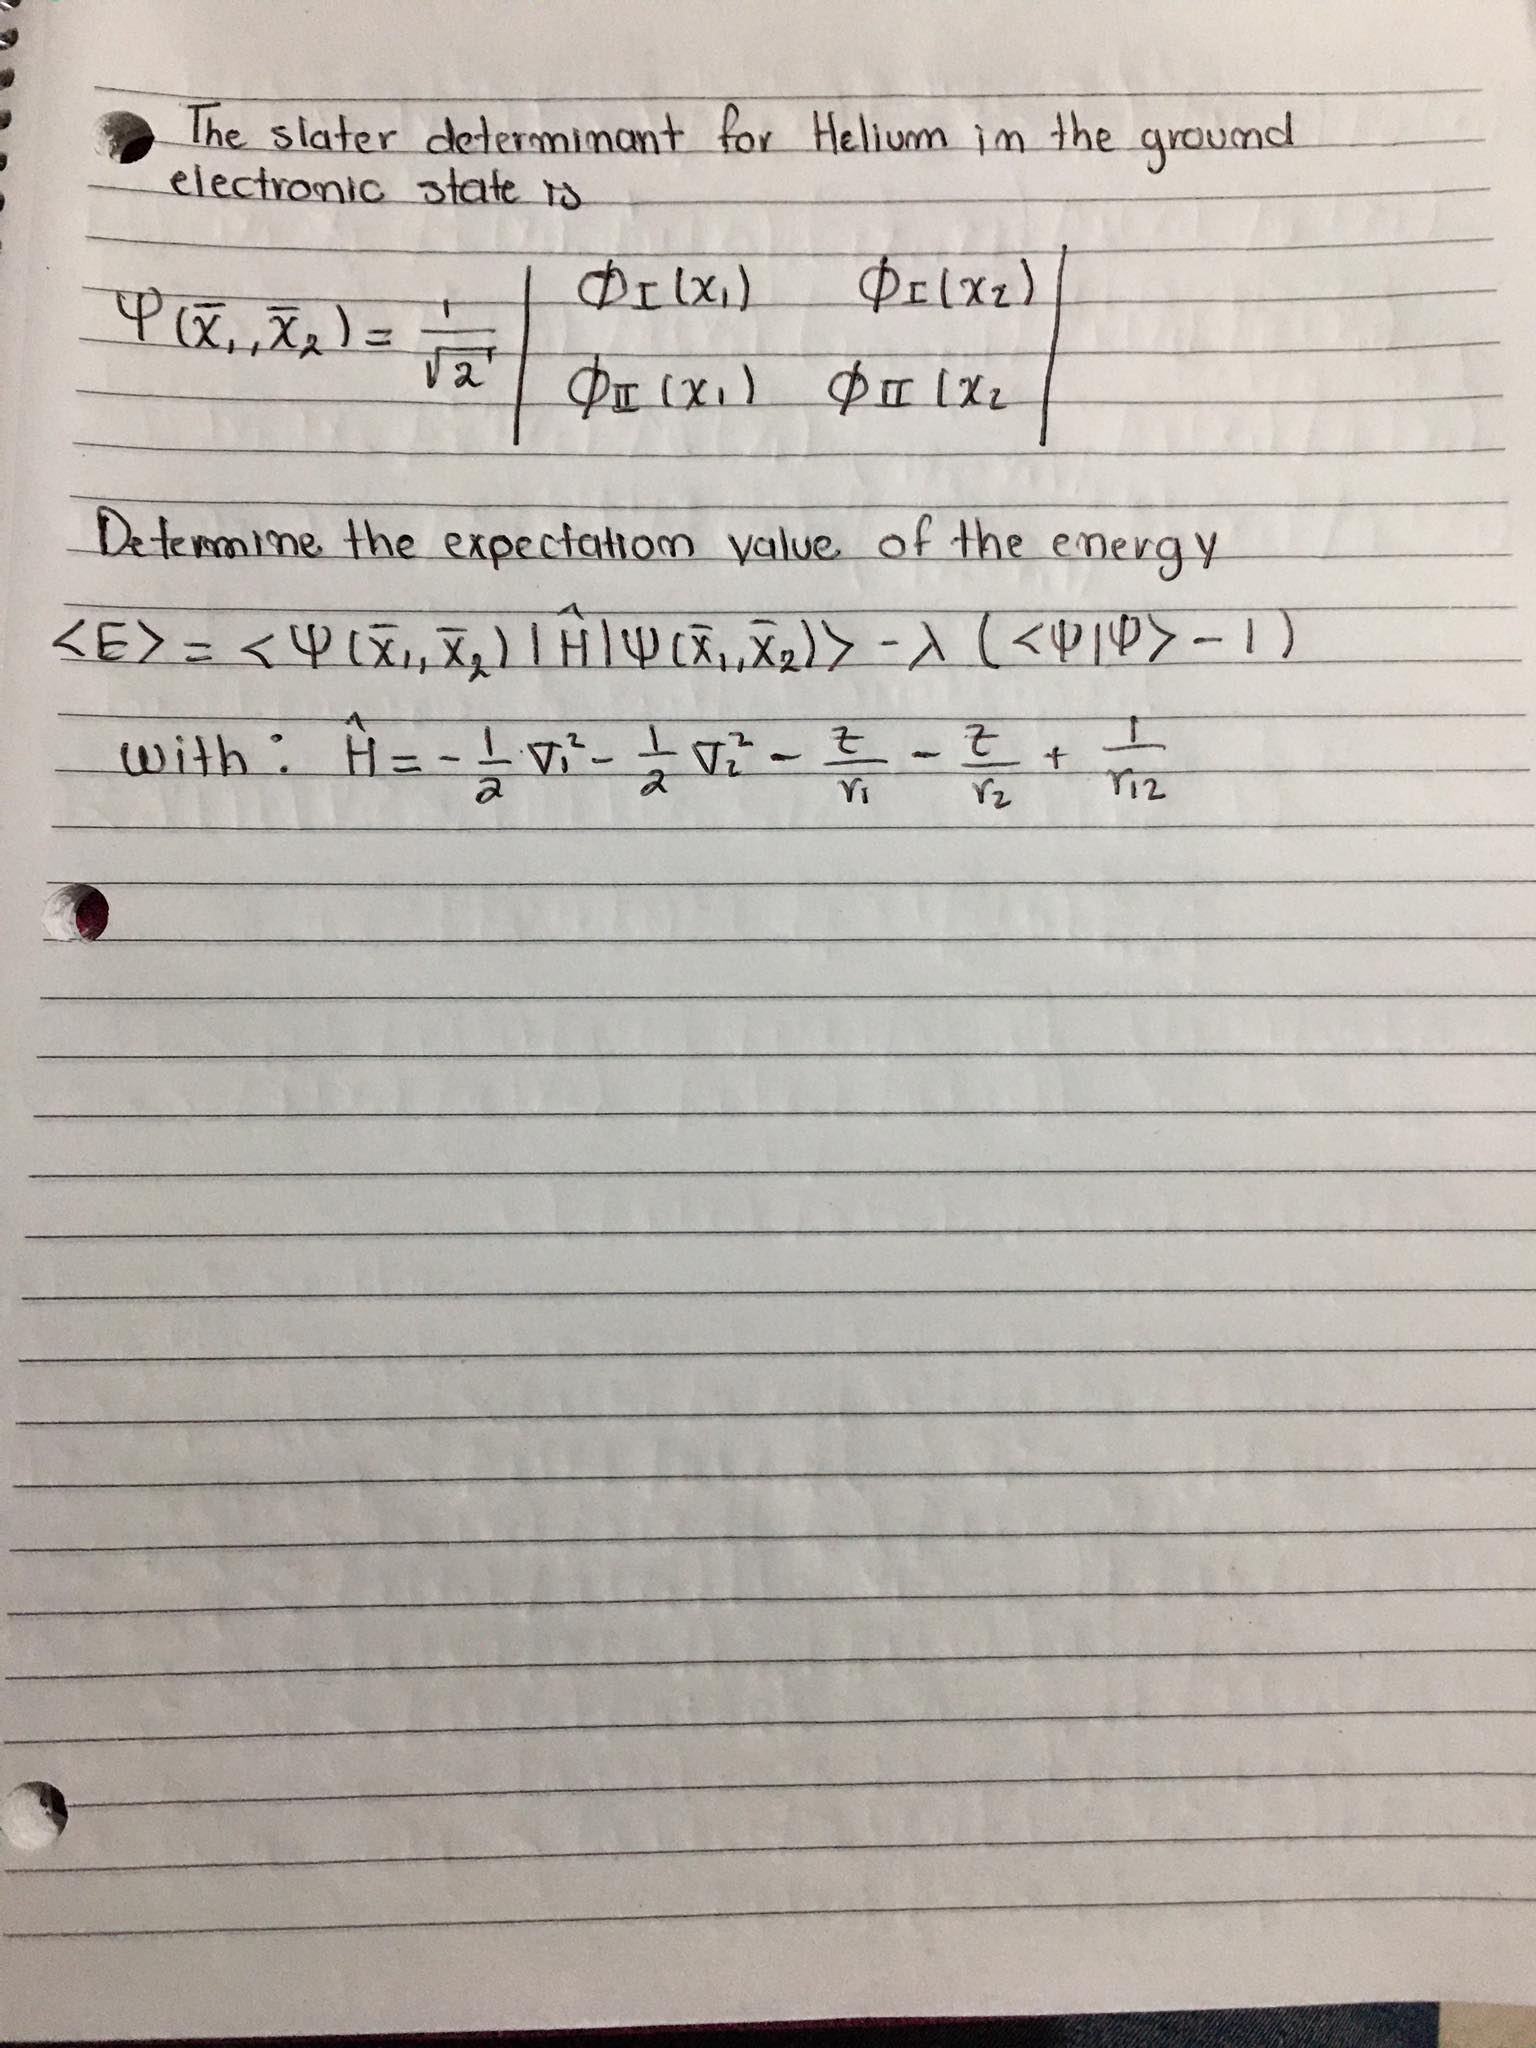 The slater determinant for Helium in the ground
electronic state is
Ψ(x̄₁, x̄₂) = 1/√2 | ΦI(x₁) ΦI(x₂) |
| ΦII(x₁) ΦII(x₂ |
Determine the expectation value of the energy
<E> = <Ψ(x̄₁, x̄₂)|Ĥ|Ψ(x̄₁, x̄₂)> - λ(<Ψ|Ψ> - 1)
with: Ĥ = - 1/2 ∇₁² - 1/2 ∇₂² - z/r₁ - z/r₂ + 1/r₁₂